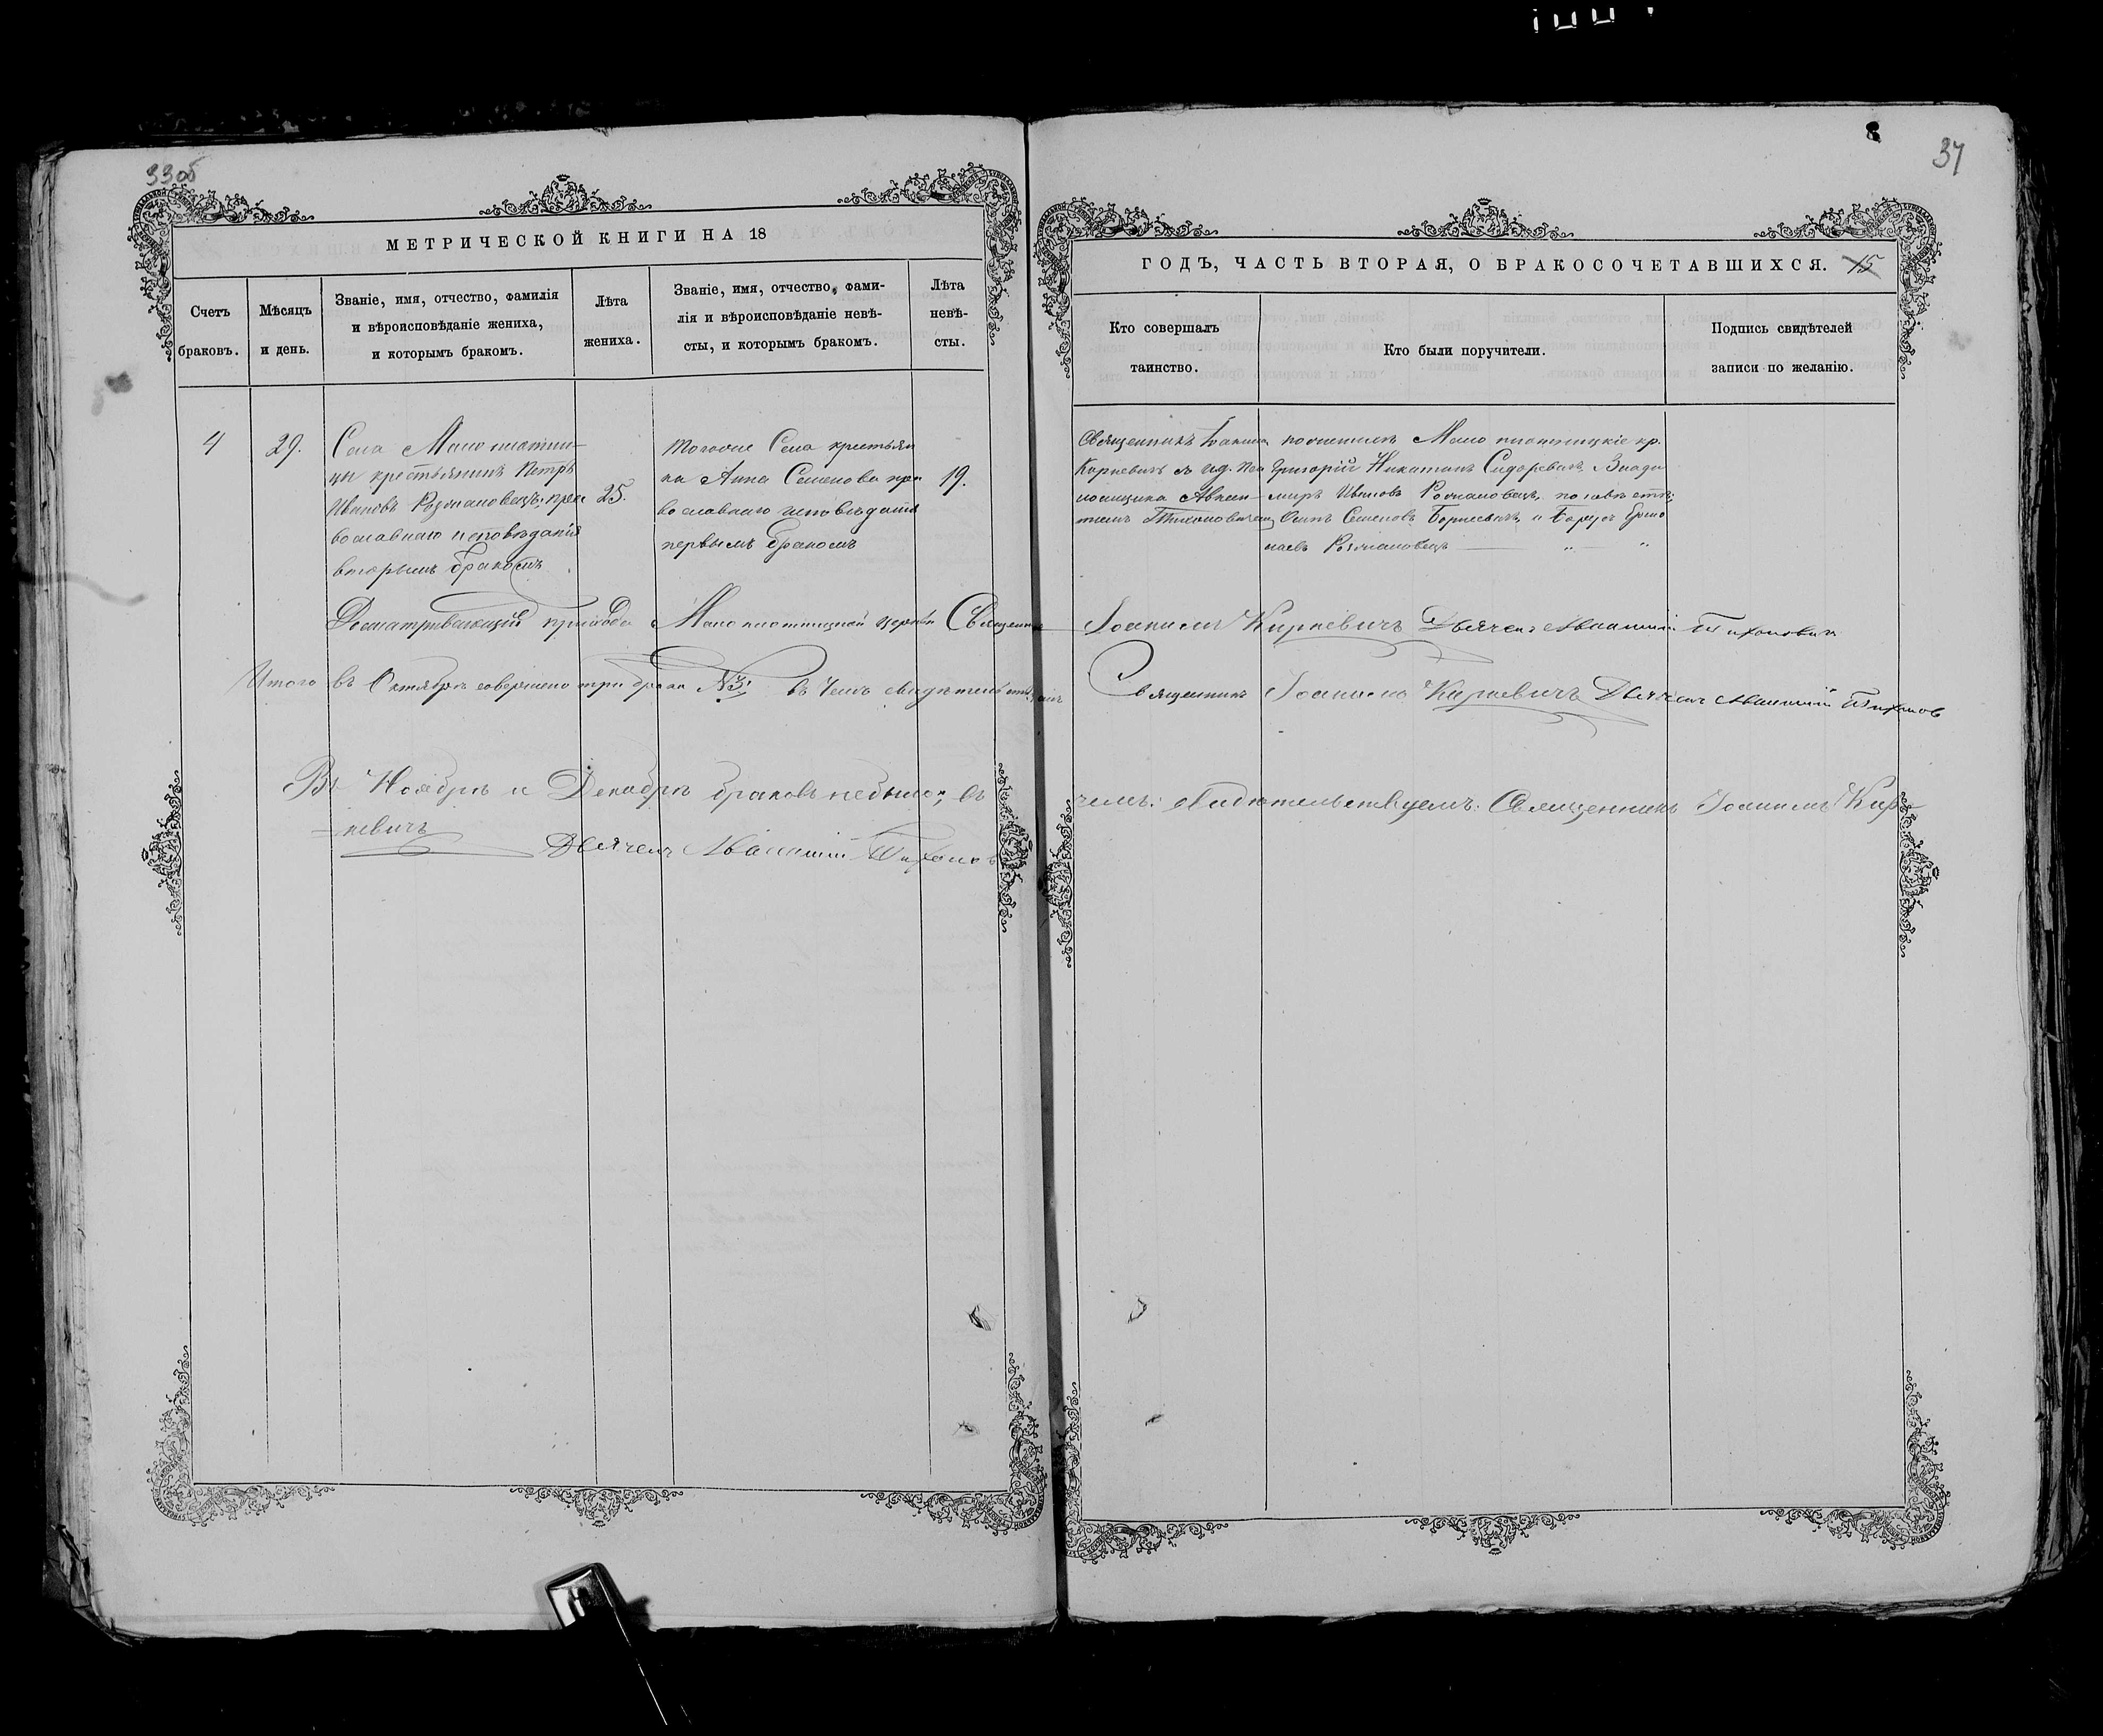 33об
МЕТРИЧЕСКОЙ КНИГИ НА 18
Счетъ
браковъ.
Мѣсяцъ
и день.
Званіе, имя, отчество, фамилія
и вѣроисповѣданіе жениха,
и которымъ бракомъ.
Лѣта
жениха.
Званіе, имя, отчество, фами-
лія и вѣроисповѣданіе невѣ-
сты, и которымъ бракомъ.
Лѣта
невѣ-
сты.
4
29.
Села Малоплотни-
цы крестьянинъ Петръ
Ивановъ пра
вославнаго исповѣданія
вторымъ бракомъ
25.
тогоже Села крестьян
ка Анна Семенова пра
вославнаго исповѣданія
первымъ бракомъ
19.
прихода Малоплотницкой церкви Священникъ
Итого въ Октябрѣ совершено три брака №3. въ чемъ свидѣтельствуемъ
Въ Ноябрѣ и Декабрѣ браковъ небыло; въ
=певичъ
Тихонов
8
37
ГОДЪ, ЧАСТЬ ВТОРАЯ, О БРАКОСОЧЕТАВШИХСЯ. 15
Кто совершалъ
таинство.
Кто были поручители.
Подпись свидѣтелей
записи по желанію.
Священникъ Іоакимъ
Карпевичъ съ
Тихоновичемъ
Мало плотницкіе кр.
Григорій Никитинъ Сидоревичъ
Ивановъ по невѣстѣ
Осипъ Семеновъ
Іоакимъ Кирпевичъ Тихонович
Священникъ Іоакимъ Кирпевичъ Тихонов
чемъ: свидѣтельствуемъ: Священникъ Іоакимъ Кир-